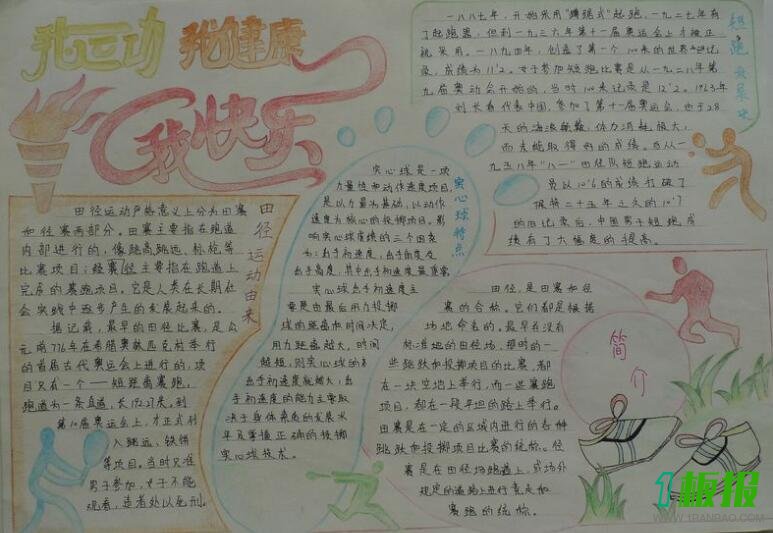 我运动 我健康
我快乐
田径运动由来
田径运动严格意义上分为田赛
和径赛两部分。田赛主要指在跑道
内部进行的，像跳高跳远、标枪等
比赛项目；径赛主要指在跑道上
完成的赛跑项目。它是人类在长期社
会实践中逐步产生的发展起来的。
据记载，最早的田径比赛，是公
元前776年在希腊奥林匹克村举行
的首届古代奥运会上进行的，项
目只有一个——短距离赛跑，
跑道为一条直道，长192.27米。到
入跳远、铁饼
等项目。当时只准
男子参加，女子不能
观看，违者处以死刑。
实心球特点
实心球是一项
力量性和动作速度项目，
是以力量为基础，以动作
速度为核心的投掷项目。影
响实心球成绩的三个因素
为：出手初速度，出手角度及
出手高度，其中出手初速度最重要
实心球出手初速度主
要是由最后用力投掷
球的距离和时间决定，
用力距离越大，时间
越短，则实心球的
出手初速度就越大，出
手初速度的能力主要取
决于身体素质的发展水
平及掌握正确的投掷
实心球技术。
短跑
一八八七年，开始采用“蹲踞式”起跑，一九二七年有
了起跑器，但到一九三六年第十一届奥运会上才被正
式采用。一八九四年，创造了第一个100米的世界
录，成绩为11"2。女子参加短跑比赛是从一九二八年第
九届奥动会开始的，当时100米记录是12"2。
刘长春代表中国，参加了第十届奥运会，由于28
天的海浪颠簸，体力消耗极大，
而未能取得好的成绩。
一九五八年“八一”田径队短跑运动
员以10"6的成绩打破了
保持二十五年之久的10"7
的旧记录后，中国男子短跑成
绩有了大幅度的提高。
简介
田径，是田赛和径
赛的合称。它们都是根据
场地命名的。最早在没有
标准地的田径场，那时的一
些跳跃和投掷项目的比赛，都
在一块空地上举行，而一些赛跑
项目，都在一段平坦的路上举行。
田赛是在一定的区域内进行的各种
跳跃和投掷项目比赛的统称。径
赛是在田径场跑道上，或场外
规定的道路上进行竞走和
赛跑的统称。
1板报
WWW.1RANBAO.COM